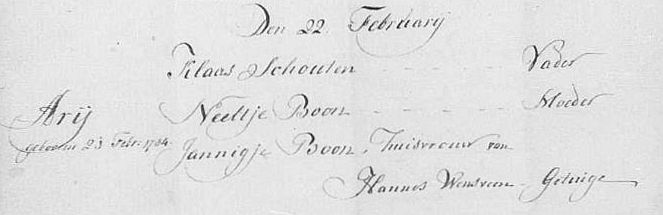 Den 22 Februarij
Klaas Schouten - - - - Vader
Neeltje Boon - - - - Moeder
Arij
geboren 23 Febr: 1784. Jannigje Boon, Huisvrouw van
Hannes Wensveen - Getuige